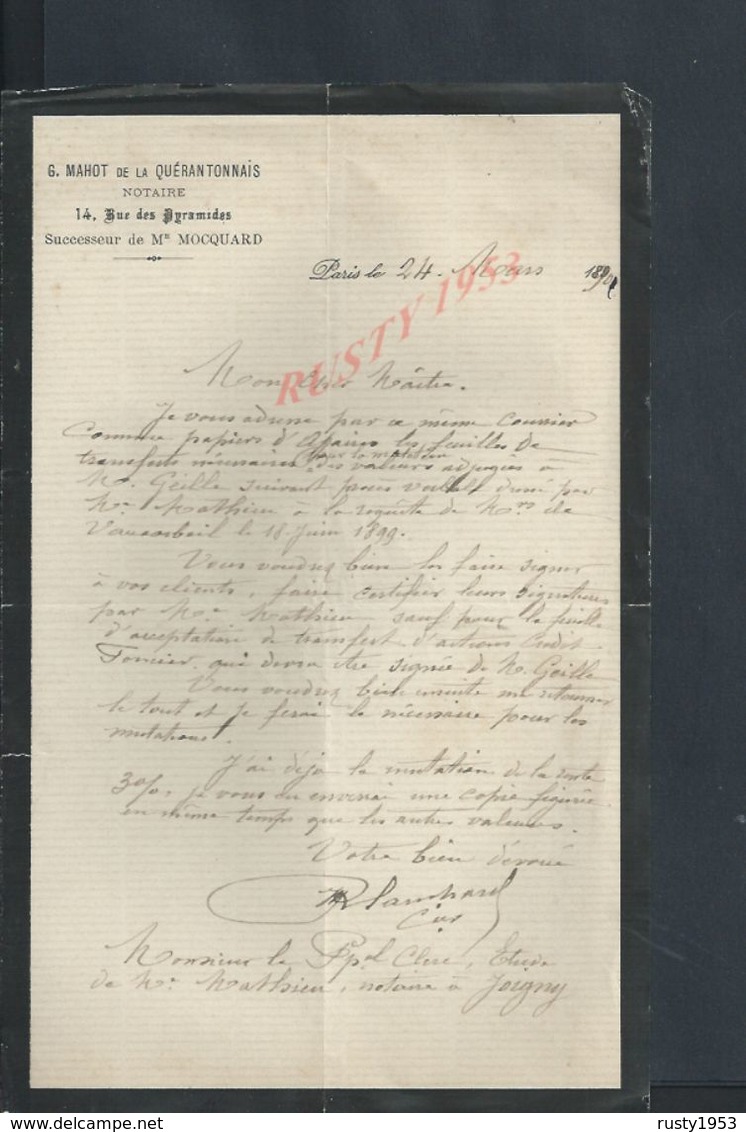 G. MAHOT DE LA QUÉRANTONNAIS
NOTAIRE
14, Rue des Pyramides
Successeur de Me MOCQUARD
Paris le 24 Mars 189
RUSTY 1953
Mon cher Maître.
Je vous adresse par ce même courrier
comme papiers d'Affaires les feuilles de
pour la mutation
transferts nécessaires des valeurs adjugées à
M. Geille suivant procès verbal dressé par
Me Mathieu à la requête de Mrs de
le 18 Juin 1899.
Vous voudrez bien les faire signer
à vos clients, faire certifier leurs signatures
par Me Mathieu sauf pour la feuille
d'acceptation de transfert d'actions Crédit
Foncier qui devra être signée de M. Geille
Vous voudrez bien ensuite me retourner
le tout et je ferai le nécessaire pour les
mutations.
J'ai déjà la mutation de la rente
3% je vous en enverrai une copie figurée
en même temps que les autres valeurs.
Votre bien dévoué
Blanchard
Monsieur le Ppal Clerc, Etude
de Me Mathieu, notaire à Joigny
delcampe.net
rusty1953